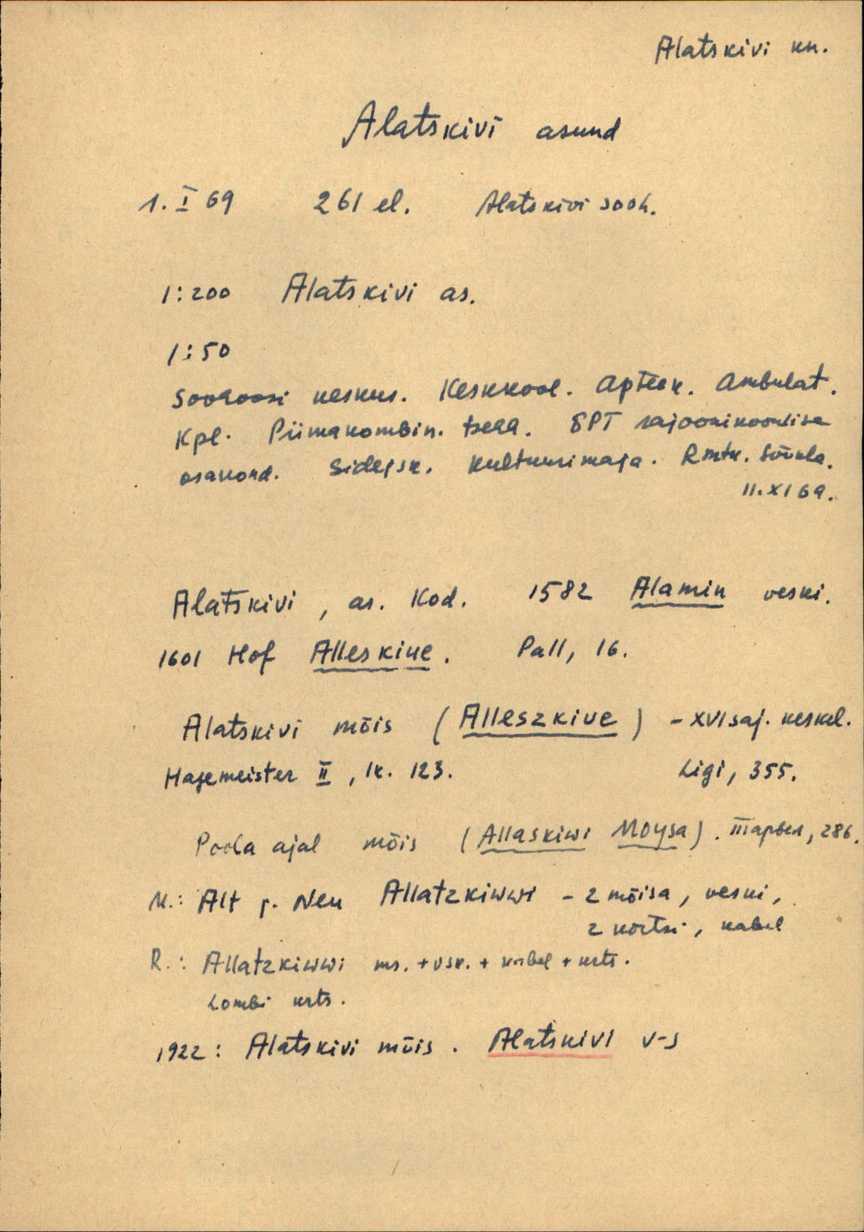 Alatskivi kn.
Alatskivi asund
1. I 69 261 el. Alatskivi sooh.
1:200 Alatskivi as.
1:50
Sovhoosi keskus. Keskkool. Apteek. Ambulat.
Kpl. Piimakombin. tsehh. EPT rajoonikoondise
osakond. Sidejsk. Kultuurimaja. Rmtk. Söökla.
11.XI 69.
Alatskivi, as. Kod. 1582 Alamin veski.
1601 Hof Alleskiue. Pall, 16.
Alatskivi mõis (Alleszkiue) - XVI saj. keskel.
Hagemeister II, lk. 123. Ligi, 355.
Poola ajal mõis (Allaskiwi Moysa). 286.
M.: Alt j. Neu Allatzkiwwi - 2 mõisa, veski,
2 kõrtsi, kabel
R.: Allatzkiwwi ms. + vsk. + kabel + krts.
Lombi krts.
1922: Alatskivi mõis. Alatskivi v-s